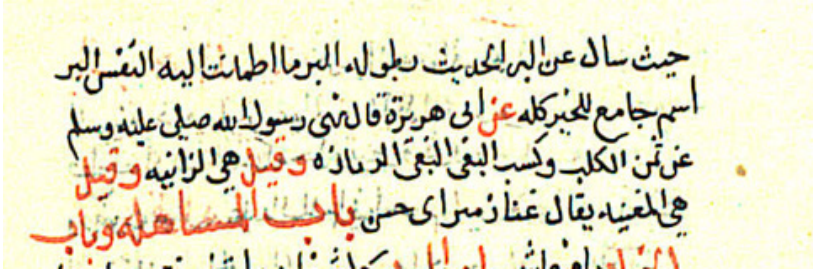 حيث سال عن البر الحديث بطوله البر ما اطمانت اليه النفس البر
اسم جامع للخير كله عن ابى هريرة قال نهى رسول الله صلى عليه وسلم
عن ثمن الكلب وكسب البغى البغى الزمازه وقيل هى الزانيه وقيل
هى المغنيه يقال غنا زمير اى حسن باب المساهله وباب